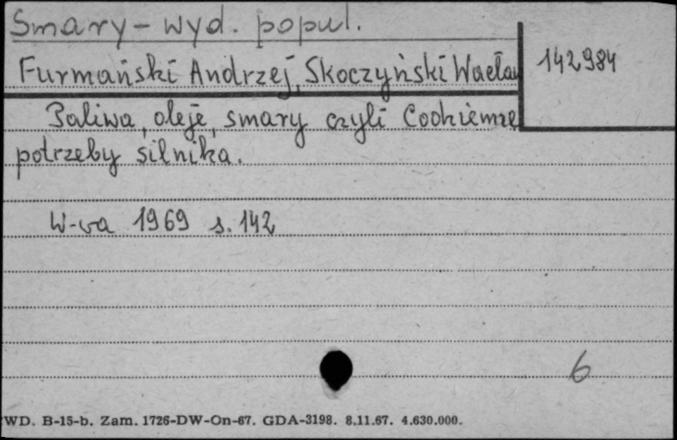 Smary - wyd. popul.
Furmański Andrzej, Skoczyński Wacław
142984
Paliwa, oleje, smary czyli Codzienne
potrzeby silnika.
W-wa 1969 s. 142
6
WD. B-15-b. Zam. 1726-DW-On-67. GDA-3198. 8.11.67. 4.630.000.